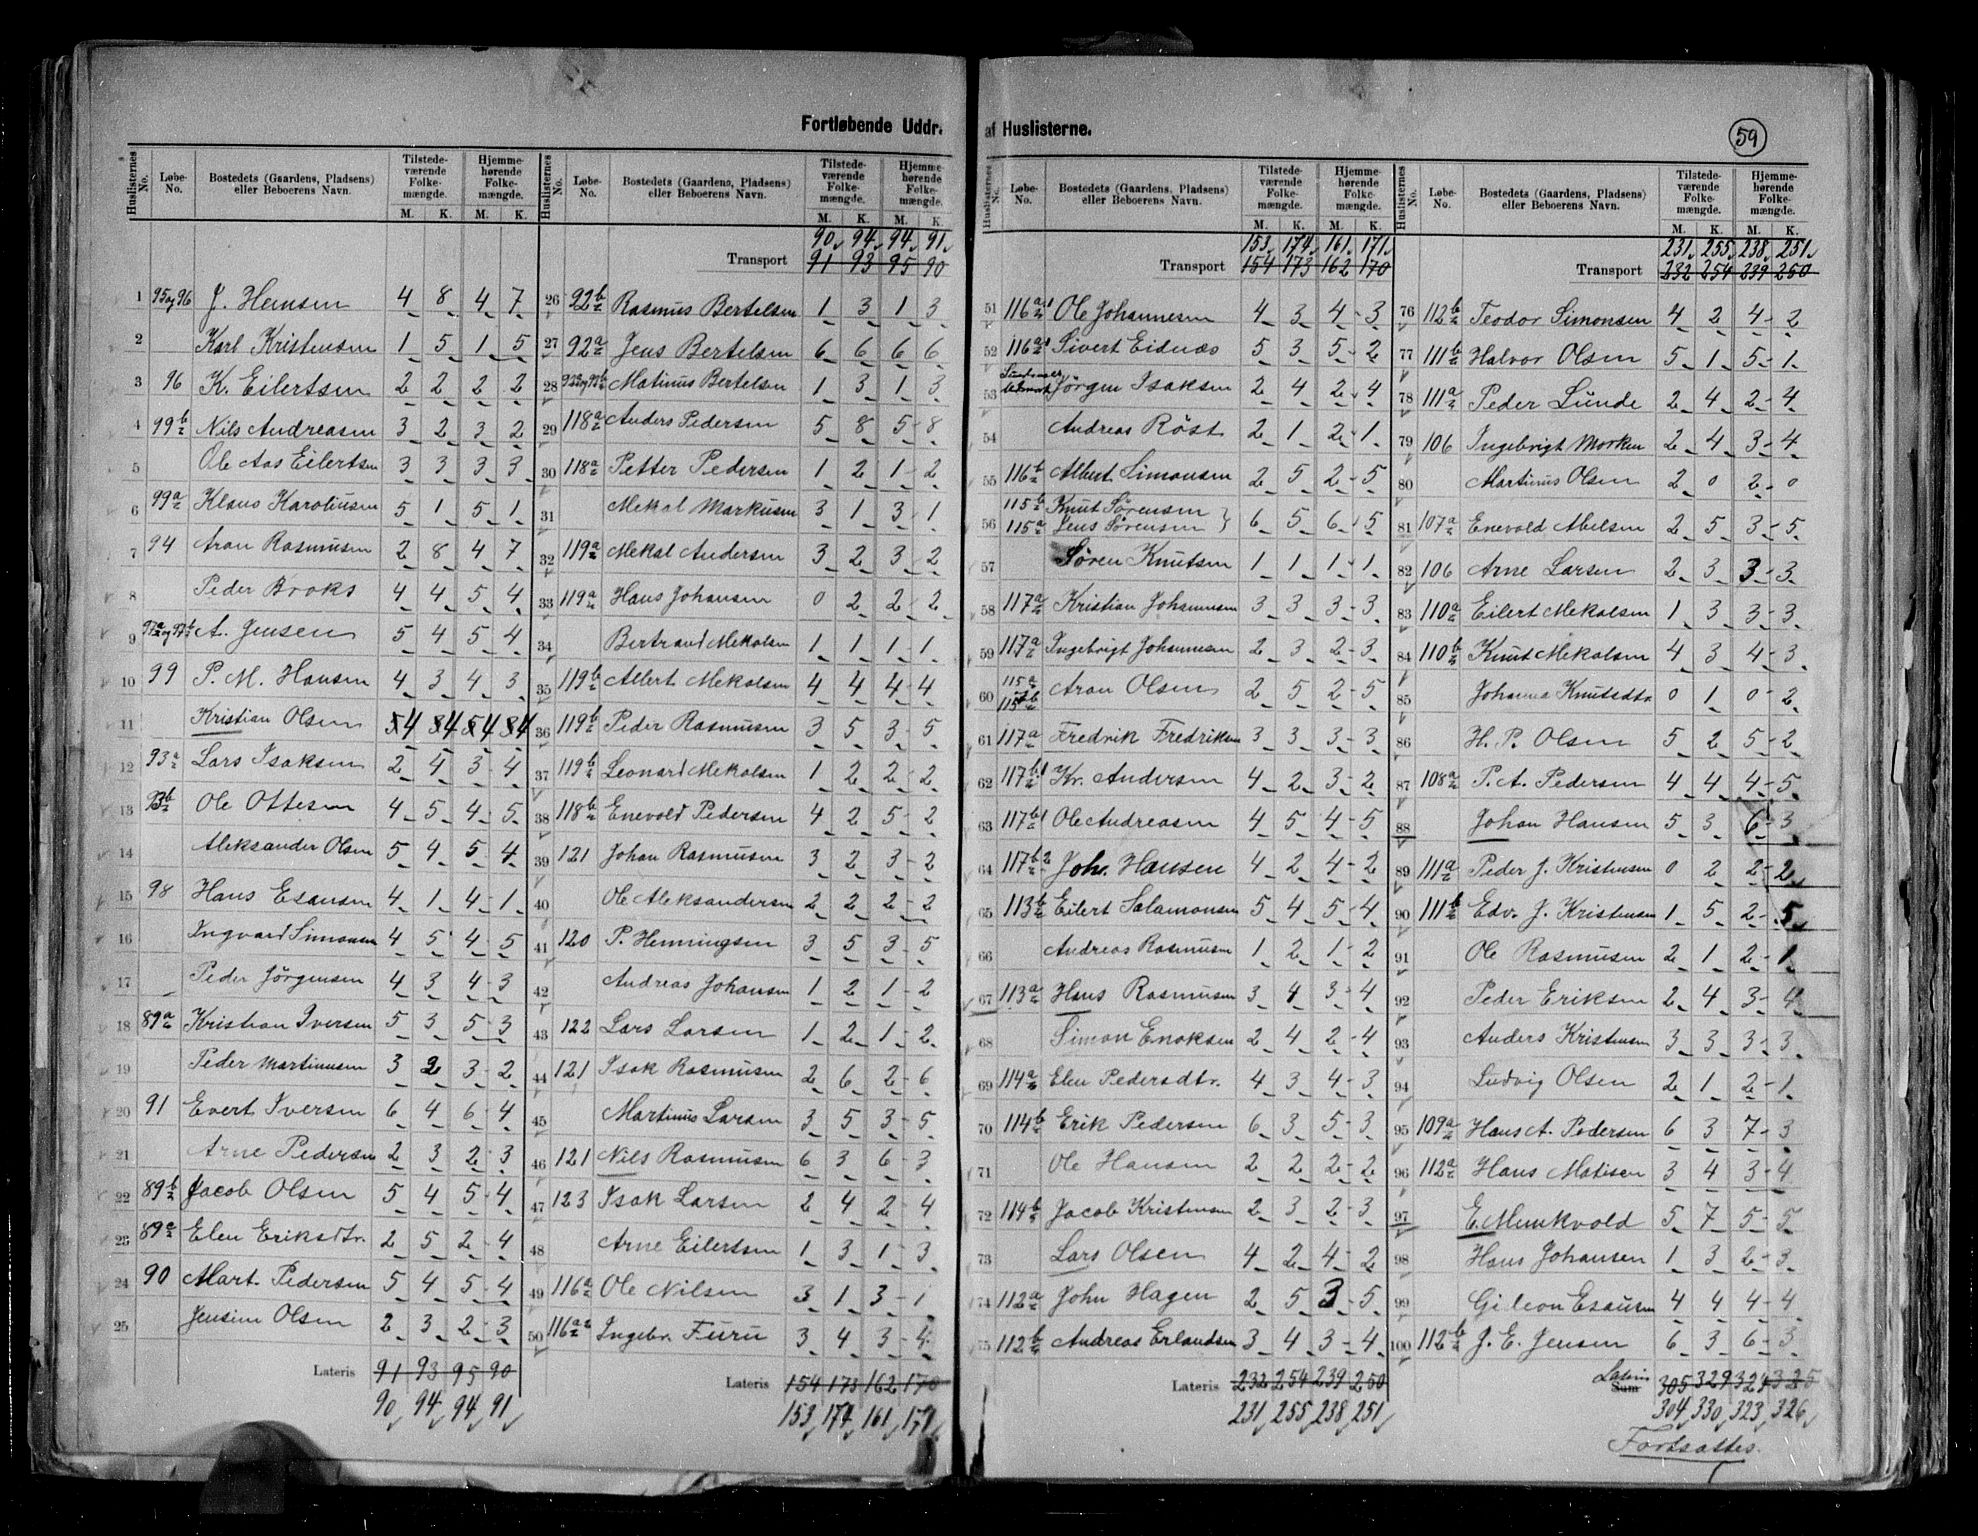 Fortløbende Uddr. af Huslisterne.
59
Huslisternes No. | Løbe-No. | Bostedets (Gaardens, Pladsens) eller Beboerens Navn. | Tilstedeværende Folkemængde. M. K. | Hjemmehørende Folkemængde. M. K.
1 95 og 96 J. Hemsen 4 8 4 7
2 Karl Kristensen 1 5 1 5
3 96 K. Eilertsen 2 2 2 2
4 99b Nils Andreasen 3 2 3 2
5 Ole Aas Eilertsen 3 3 3 3
6 99a Klaus Karoliusen 5 1 5 1
7 94 Aron Rasmusen 2 8 4 7
8 Peder Broks 4 4 5 4
9 97a og 97b A. Jensen 5 4 5 4
10 99 P. M. Hansen 4 3 4 3
11 Kristian Olsen 4 4 4 4
12 93a Lars Isaksen 2 4 3 4
13 93b Ole Ottesen 4 5 4 5
14 Aleksander Olsen 5 4 5 4
15 98 Hans Esausen 4 1 4 1
16 Ingvard Simonsen 4 5 4 5
17 Peder Jørgensen 4 3 4 3
18 89a Kristian Iversen 5 3 5 3
19 Peder Martinusen 3 2 3 2
20 91 Evert Iversen 6 4 6 4
21 Arne Pedersen 2 3 2 3
22 89b Jacob Olsen 5 4 5 4
23 89a Elen Eriksdtr. 2 5 2 4
24 90 Mart. Pedersen 5 4 5 4
25 Jensine Olsen 2 3 2 3
Lateris 91 93 95 90
90 94 94 91
Huslisternes No. | Løbe-No. | Bostedets (Gaardens, Pladsens) eller Beboerens Navn. | Tilstedeværende Folkemængde. M. K. | Hjemmehørende Folkemængde. M. K.
90 94 94 91
Transport 91 93 95 90
26 92b Rasmus Bertelsen 1 3 1 3
27 92a Jens Bertelsen 6 6 6 6
28 92a og 92b Matinus Bertelsen 1 3 1 3
29 118a Anders Pedersen 5 8 5 8
30 118a Petter Pedersen 1 2 1 2
31 Mekal Markusen 3 1 3 1
32 119a Mekal Andersen 3 2 3 2
33 119a Hans Johansen 0 2 2 2
34 Bertrand Mekalsen 1 1 1 1
35 119b Albert Mekalsen 4 4 4 4
36 119b Peder Rasmusen 3 5 3 5
37 119b Leonard Mekalsen 1 2 2 2
38 118b Enevold Pedersen 4 2 5 2
39 121 Johan Rasmusen 3 2 3 2
40 Ole Aleksandersen 2 2 2 2
41 120 P. Henningsen 3 5 3 5
42 Andreas Johansen 1 2 1 2
43 122 Lars Larsen 1 2 1 2
44 121 Isak Rasmusen 2 6 2 6
45 Martinus Larsen 3 5 3 5
46 121 Nils Rasmusen 6 3 6 3
47 123 Isak Larsen 2 4 2 4
48 Arne Eilertsen 1 3 1 3
49 116a Ole Nilsen 3 1 3 1
50 116a2 Ingebr. Furu 3 4 3 4
Lateris 154 173 162 170
153 174 161 171
Huslisternes No. | Løbe-No. | Bostedets (Gaardens, Pladsens) eller Beboerens Navn. | Tilstedeværende Folkemængde. M. K. | Hjemmehørende Folkemængde. M. K.
153 174 161 171
Transport 154 173 162 170
51 116a1 Ole Johannesen 4 3 4 3
52 116a1 Sivert Eidnæs 5 3 5 2
53 Jørgen Isaksen 2 4 2 4
54 Andreas Röst 2 1 2 1
55 116b Albert Simonsen 2 5 2 5
56 115b Knut Sørensen
115a Jens Sørensen } 6 5 6 5
57 Søren Knutsen 1 1 1 1
58 117a Kristian Johannesen 3 3 3 3
59 117a Ingebrigt Johannesen 2 3 2 3
60 115a 115b Aron Olsen 2 5 2 5
61 117a Fredrik Fredriksen 3 3 3 3
62 117b1 Kr. Andersen 4 2 3 2
63 117b1 Ole Andreasen 4 5 4 5
64 117b2 Joh. Hansen 4 2 4 2
65 113b Eilert Salamonsen 5 4 5 4
66 Andreas Rasmusen 1 2 1 2
67 113a Hans Rasmusen 3 4 3 4
68 Simon Enoksen 2 4 2 4
69 114a Elen Pedersdtr. 4 3 4 3
70 114b Erik Pedersen 6 3 5 3
71 Ole Hansen 2 2 2 2
72 114b Jacob Kristensen 2 3 2 3
73 Lars Olsen 4 2 4 2
74 112a John Hagen 2 5 3 5
75 112b Andreas Erlandsen 3 4 3 4
Lateris 232 254 239 250
231 255 238 251
Huslisternes No. | Løbe-No. | Bostedets (Gaardens, Pladsens) eller Beboerens Navn. | Tilstedeværende Folkemængde. M. K. | Hjemmehørende Folkemængde. M. K.
231 255 238 251
Transport 232 254 239 250
76 112b Teodor Simonsen 4 2 4 2
77 111b Halvor Olsen 5 1 5 1
78 111a Peder Lunde 2 4 2 4
79 106 Ingebrigt Morken 2 4 3 4
80 Martinus Olsen 2 0 2 0
81 107a Enevold Abelsen 2 5 3 5
82 106 Arne Larsen 2 3 3 3
83 110a Eilert Mekalsen 1 3 3 3
84 110b Knut Mekalsen 4 3 4 3
85 Johanna Knutsdtr. 0 1 0 2
86 H. P. Olsen 5 2 5 2
87 108a P. A. Pedersen 4 4 4 5
88 Johan Hansen 5 3 6 3
89 111a Peder J. Kristensen 0 2 2 2
90 111b Edv. J. Kristensen 1 5 2 5
91 Ole Rasmusen 2 1 2 1
92 Peder Eriksen 2 4 3 4
93 Anders Kristensen 3 3 3 3
94 Ludvig Olsen 2 1 2 1
95 109a Hans A. Pedersen 6 3 7 3
96 112a Hans Matisen 3 4 3 4
97 E. Munkvold 5 7 5 5
98 Hans Johansen 1 3 2 3
99 Gideon Esausen 4 4 4 4
100 112b J. E. Jensen 6 3 6 3
Lateris Sum 305 329 324 325
304 330 323 326
Fortsættes.